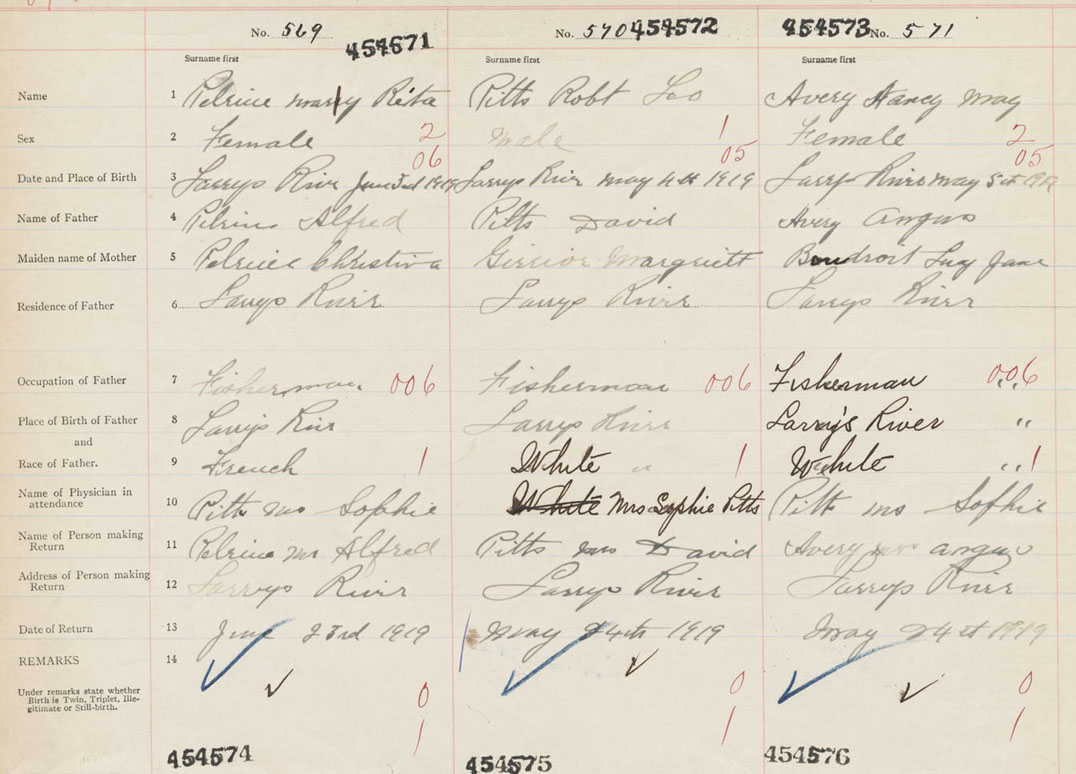 No. 569 454571 No. 570 454572 454573 No. 571
Surname first Surname first Surname first
Name 1 Pelrine Mary Rita Pitts Robt Leo Avery Nancy May
Sex 2 Female 2 Male 1 Female 2
06 05 05
Date and Place of Birth 3 Larrys River June 1919 Larrys River May 4th 1919 Larrys River May 5th 1919
Name of Father 4 Pelrine Alfred Pitts David Avery Angus
Maiden name of Mother 5 Pelrine Christina Girrior Margruitt Boudroit Lucy Jane
Residence of Father 6 Larrys River Larrys River Larrys River
Occupation of Father 7 Fisherman 006 Fisherman 006 Fisherman 006 "
Place of Birth of Father 8 Larrys River Larrys River Larry's River "
and
Race of Father. 9 French 1 White " 1 White " 1
Name of Physician in attendance 10 Pitts Mrs Sophie White Mrs Sophie Pitts Pitts Mrs Sophie
Name of Person making Return 11 Pelrine Mr Alfred Pitts Mrs David Avery Mrs Angus
Address of Person making Return 12 Larrys River Larrys River Larrys River
Date of Return 13 June 23rd 1919 May 24th 1919 May 24th 1919
REMARKS 14
Under remarks state whether
Birth is Twin, Triplet, Ille-
gitimate or Still-birth.
0 0 0
1 1 1
454574 454575 454576